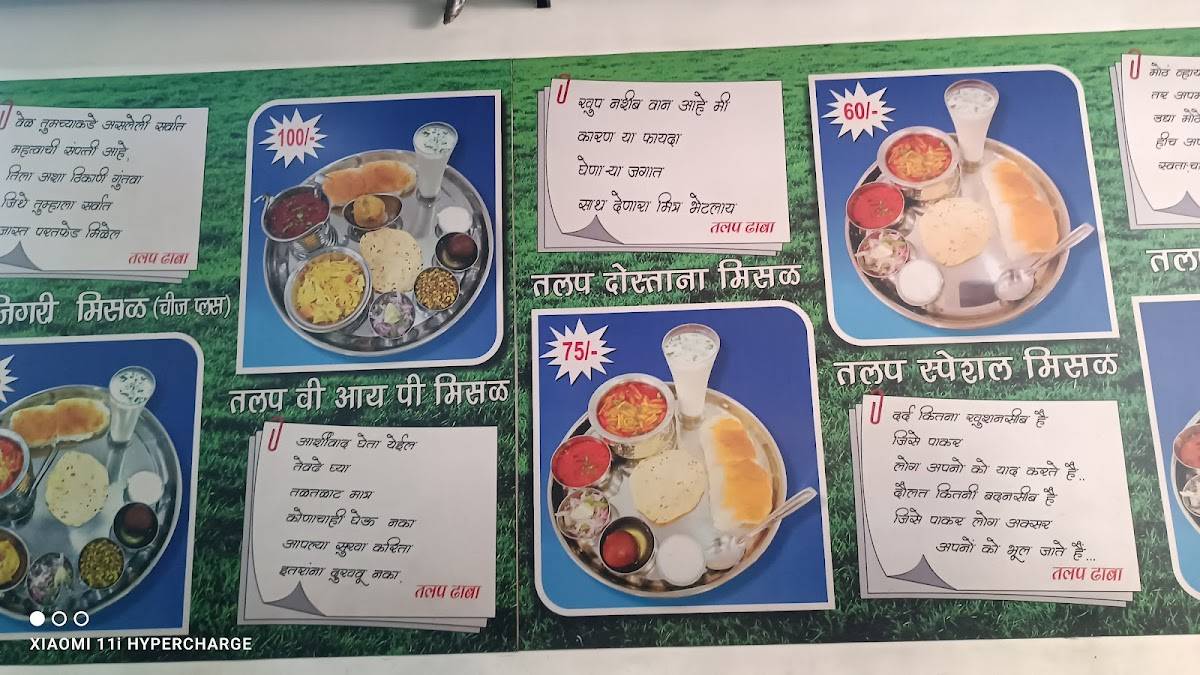 वेळ तुमच्याकडे असलेली सर्वात
महत्वाची संपत्ती आहे,
तिला अशा ठिकाणी गुंतवा
जिथे तुम्हाला सर्वात
जास्त परतफेड मिळेल
तलप ढाबा
जिगरी मिसळ (चीज प्लस)
100/-
तलप वी आय पी मिसळ
आर्शीवाद घेता येईल
तेवढे घ्या
तळतळाट मात्र
कोणाचाही घेऊ नका
आपल्या सुखा करिता
इतरांना दुखवू नका.
तलप ढाबा
खुप नशीब वान आहे मी
कारण या फायदा
घेणाऱ्या जगात
साथ देणारा मित्र भेटलाय
तलप ढाबा
तलप दोस्ताना मिसळ
75/-
60/-
तलप स्पेशल मिसळ
दर्द कितना खुशनसीब है
जिसे पाकर
लोग अपनो को याद करते है..
दौलत कितनी बदनसीब है
जिसे पाकर लोग अक्सर
अपनों को भूल जाते हैं...
तलप ढाबा
मोठं व्हाय
तर अपम
उद्या मोठे
हीच अप
स्वतः:चा
तलप
XIAOMI 11i HYPERCHARGE